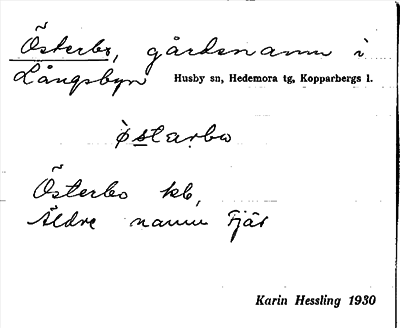 Österbo, gårdsnamn i
Långsbyn Husby sn, Hedemora tg, Kopparbergs l.
ø̀starbω
Österbo kb,
Äldre namn Fjäs
Karin Hessling 1930